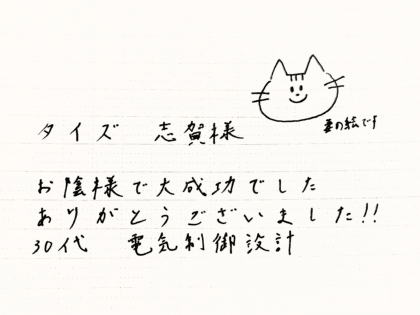 タイズ 志賀様
妻の絵です
お陰様で大成功でした
ありがとうございました!!
30代 電気制御設計